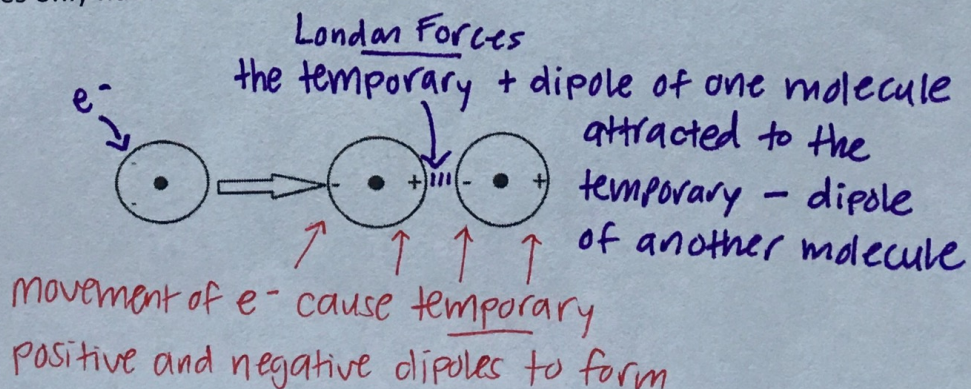 London Forces
the temporary + dipole of one molecule
attracted to the
temporary - dipole
of another molecule
e-
- + - +
movement of e- cause temporary
positive and negative dipoles to form